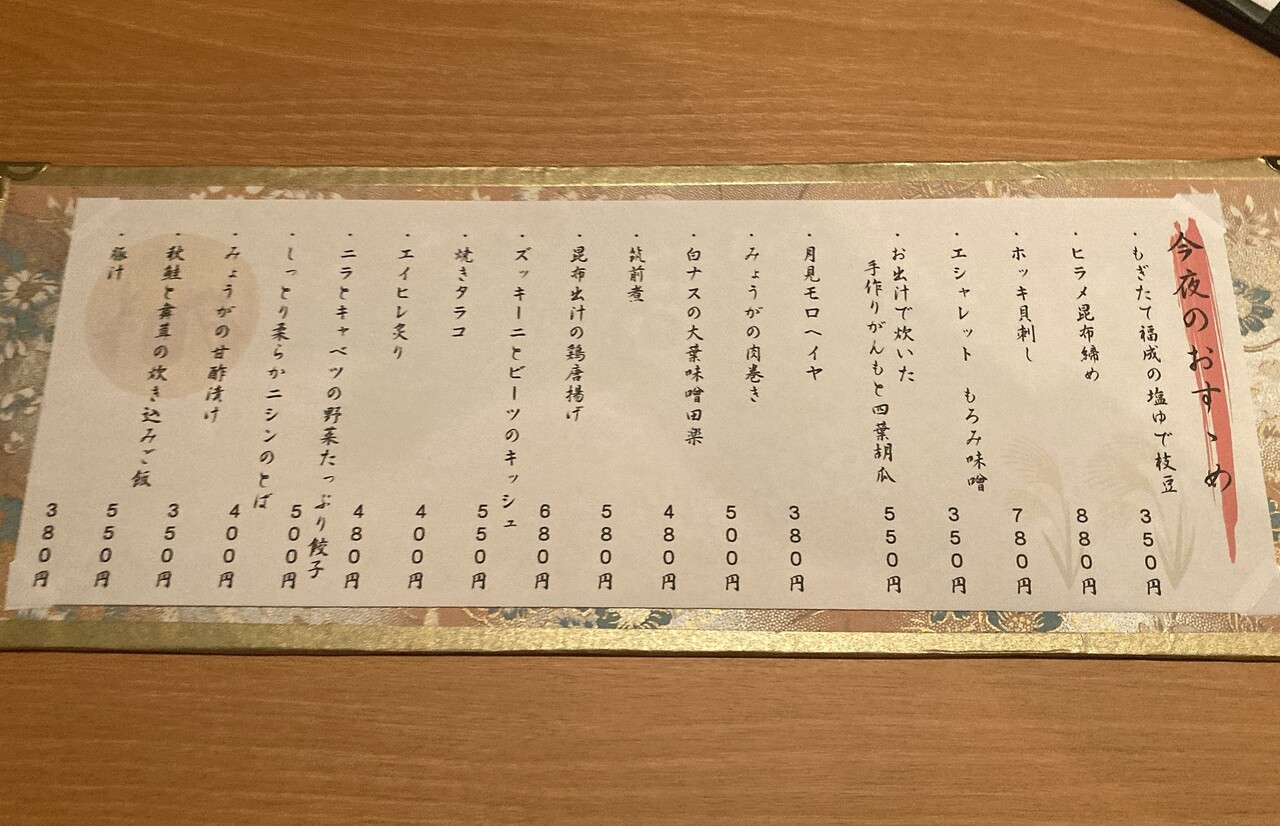 今夜のおすゝめ
・もぎたて福成の塩ゆで枝豆 350円
・ヒラメ昆布締め 880円
・ホッキ貝刺し 780円
・エシャレット もろみ味噌 350円
・お出汁で炊いた
手作りがんもと四葉胡瓜 550円
・月見モロヘイヤ 380円
・みょうがの肉巻き 500円
・白ナスの大葉味噌田楽 480円
・筑前煮 580円
・昆布出汁の鶏唐揚げ 680円
・ズッキーニとビーツのキッシュ 550円
・焼きタラコ 400円
・エイヒレ炙り 480円
・ニラとキャベツの野菜たっぷり餃子 500円
・しっとり柔らかニシンのとば 400円
・みょうがの甘酢漬け 350円
・秋鮭と舞茸の炊き込みご飯 550円
・豚汁 380円